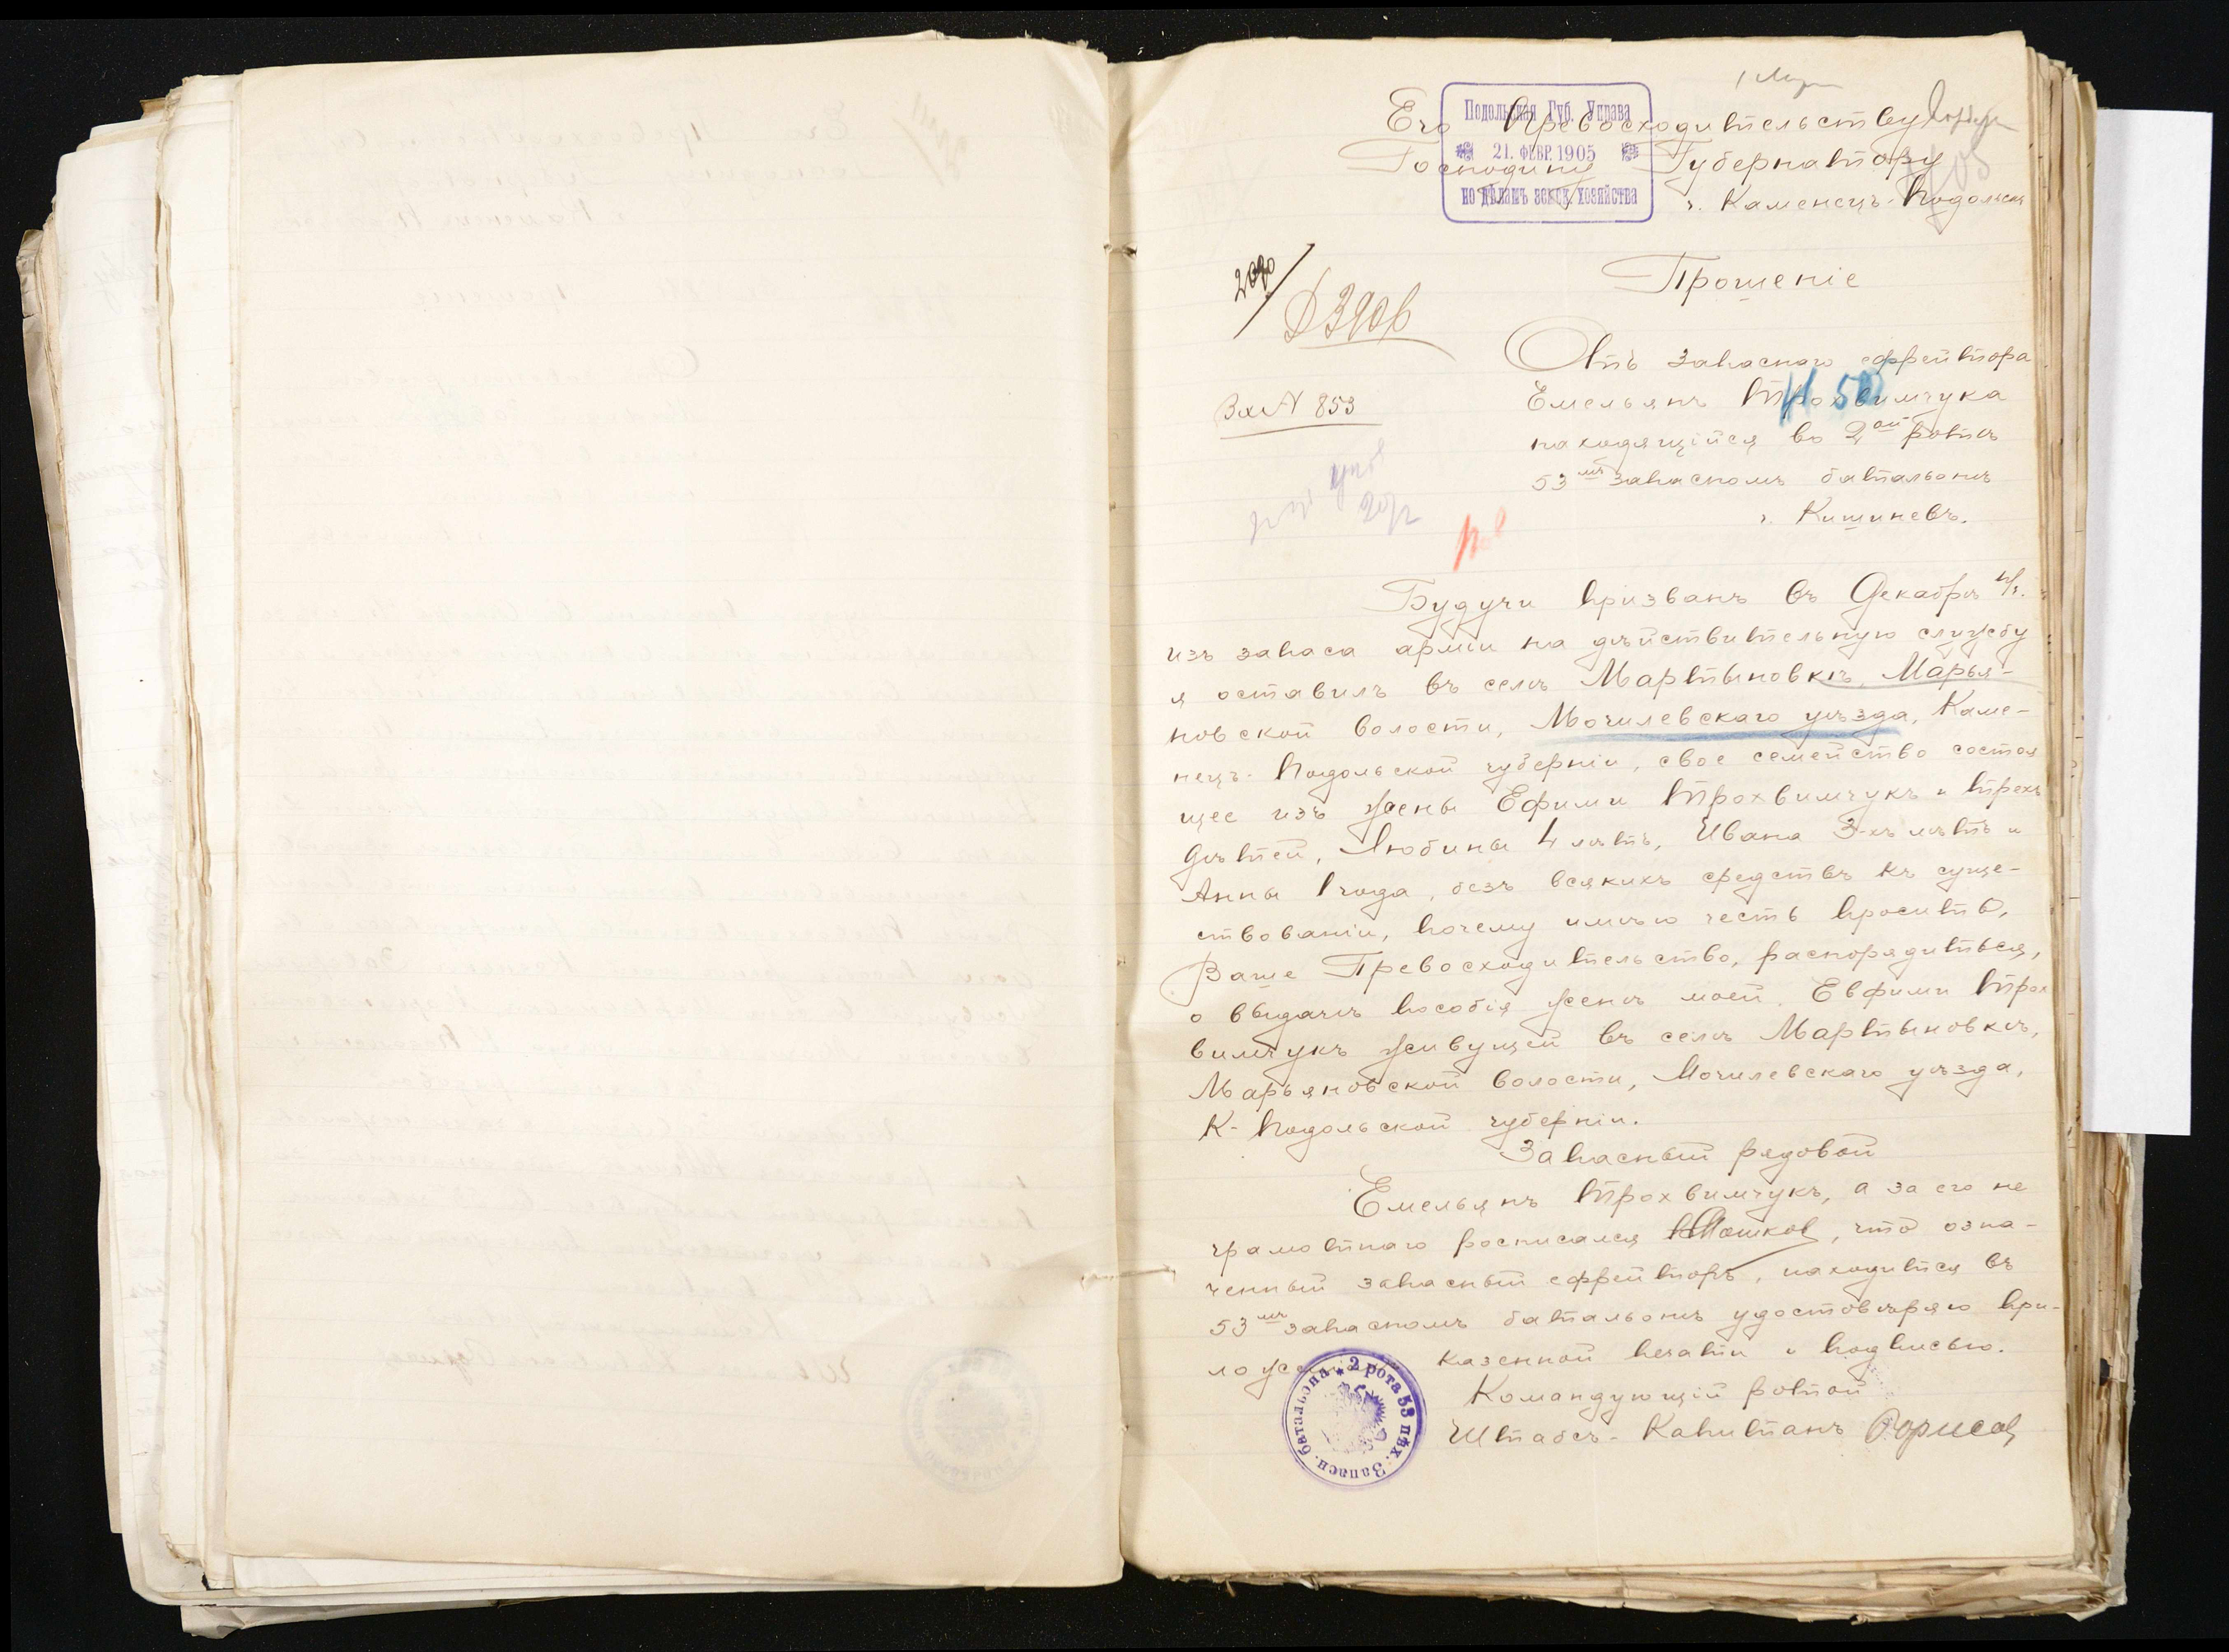 Его Превосходительству
Подольская Губ. Управа
21. ФЕВР. 1905
по дѣламъ земск. хозяйства
Господину Губернатору
г. Каменецъ-Подольскъ
Прошеніе
Отъ запаснаго ефрейтора
Емельянъ Трохвимчука
находящійся во 2ой ротѣ
Вх N 853
53мъ запасномъ баталіонѣ
г. Кишиневъ.
Будучи призванъ въ Декабрѣ
изъ запаса арміи на дѣйствительную службу
я оставилъ въ селѣ Мартыновкѣ, Марья-
новской волости, Могилевскаго уѣзда, Каме-
нецъ-Подольской губерніи, свое семейство состоя
щее изъ жены Ефими Трохвимчукъ и трехъ
дѣтей, Любины 4 лѣтъ, Ивана 3-хъ лѣтъ и
Анны 1 года, безъ всякихъ средствъ къ суще-
ствованіи, почему имѣю честь просить,
Ваше Превосходительство, распорядиться,
о выдачѣ пособія женѣ моей. Евфими Трох
вимчукъ живущей въ селѣ Мартыновкѣ,
Марьяновской волости, Могилевскаго уѣзда,
К-Подольской губерніи.
Запасный рядовой
Емельянъ Трохвимчукъ, а за его не
грамотнаго росписался Мошков, что озна-
ченный запасный ефрейторъ, находится въ
53мъ запасномъ батальонѣ удостовѣряю при-
казенной печати и подписью.
2 рота 53 пѣх. Запасн. баталіона
Командующій ротой
Штабсъ-Капитанъ